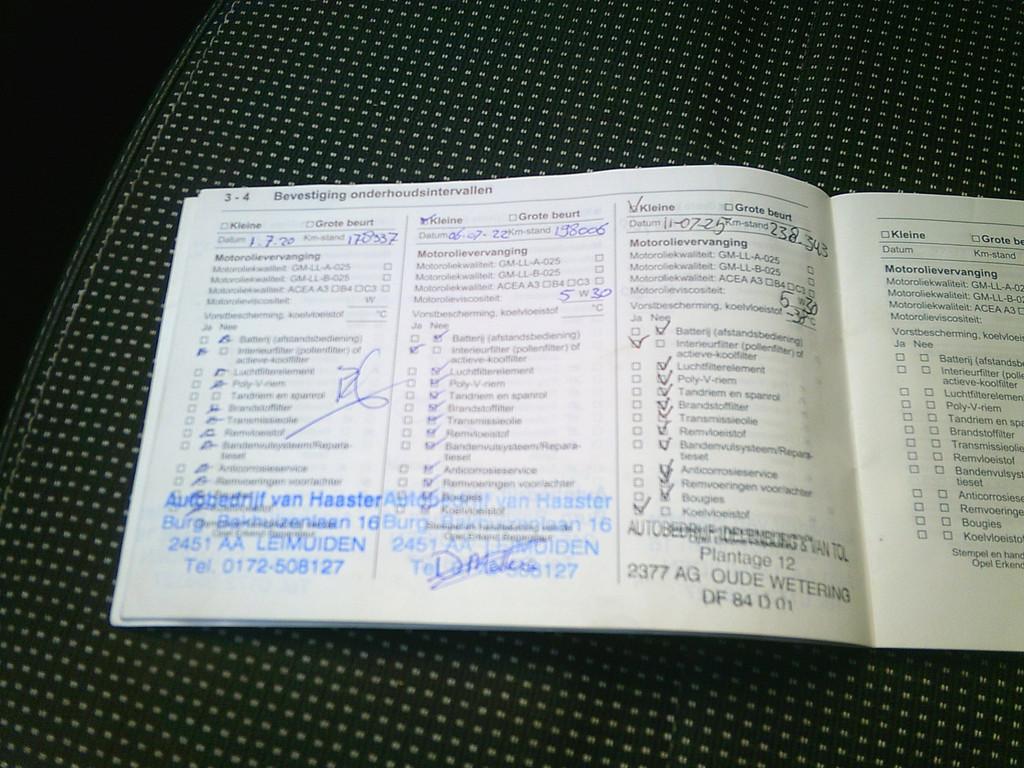 3 - 4 Bevestiging onderhoudsintervallen
Kleine Grote beurt
Datum 1.7.20 Km-stand 178337
Motorolievervanging
Motoroliekwaliteit: GM-LL-A-025
Motoroliekwaliteit: GM-LL-B-025
Motoroliekwaliteit: ACEA A3 B4 C3
Motorolieviscositeit: W
Vorstbescherming, koelvloeistof °C
Ja Nee
Batterij (afstandsbediening)
Interieurfilter (pollenfilter) of
actieve-koolfilter
Luchtfilterelement
Poly-V-riem
Tandriem en spanrol
Brandstoffilter
Transmissieolie
Remvloeistof
Bandenvulsysteem/Repara-
tieset
Anticorrosieservice
Remvoeringen voor/achter
Autobedrijf van Haaster
Burg. Bakhuizenlaan 16
2451 AA LEIMUIDEN
Tel. 0172-508127
Kleine Grote beurt
Datum 06-07-22 Km-stand 198006
Motorolievervanging
Motoroliekwaliteit: GM-LL-A-025
Motoroliekwaliteit: GM-LL-B-025
Motoroliekwaliteit: ACEA A3 B4 C3
Motorolieviscositeit: 5 W 30
Vorstbescherming, koelvloeistof °C
Ja Nee
Batterij (afstandsbediening)
Interieurfilter (pollenfilter) of
actieve-koolfilter
Luchtfilterelement
Poly-V-riem
Tandriem en spanrol
Brandstoffilter
Transmissieolie
Remvloeistof
Bandenvulsysteem/Repara-
tieset
Anticorrosieservice
Remvoeringen voor/achter
Bougies
Koelvloeistof
Autobedrijf van Haaster
Burg. Bakhuizenlaan 16
2451 AA LEIMUIDEN
Tel. 0172-508127
Kleine Grote beurt
Datum 11-07-25 Km-stand 238.343
Motorolievervanging
Motoroliekwaliteit: GM-LL-A-025
Motoroliekwaliteit: GM-LL-B-025
Motoroliekwaliteit: ACEA A3 B4 C3
Motorolieviscositeit: 5 W 30
Vorstbescherming, koelvloeistof °C
Ja Nee
Batterij (afstandsbediening)
Interieurfilter (pollenfilter) of
actieve-koolfilter
Luchtfilterelement
Poly-V-riem
Tandriem en spanrol
Brandstoffilter
Transmissieolie
Remvloeistof
Bandenvulsysteem/Repara-
tieset
Anticorrosieservice
Remvoeringen voor/achter
Bougies
Koelvloeistof
AUTOBEDRIJF & VAN TOL
Plantage 12
2377 AG OUDE WETERING
DF 84 D 01
Kleine Grote be
Datum Km-stand
Motorolievervanging
Motoroliekwaliteit: GM-LL-A-02
Motoroliekwaliteit: GM-LL-B-02
Motoroliekwaliteit: ACEA A3
Motorolieviscositeit:
Vorstbescherming, koelvloeis
Ja Nee
Batterij (afstandsb
Interieurfilter (polle
actieve-koolfilter
Luchtfilterelement
Poly-V-riem
Tandriem en spanr
Brandstoffilter
Transmissieolie
Remvloeistof
Bandenvulsyste
tieset
Anticorrosieserv
Remvoeringen
Bougies
Koelvloeistof
Stempel en hand
Opel Erkend